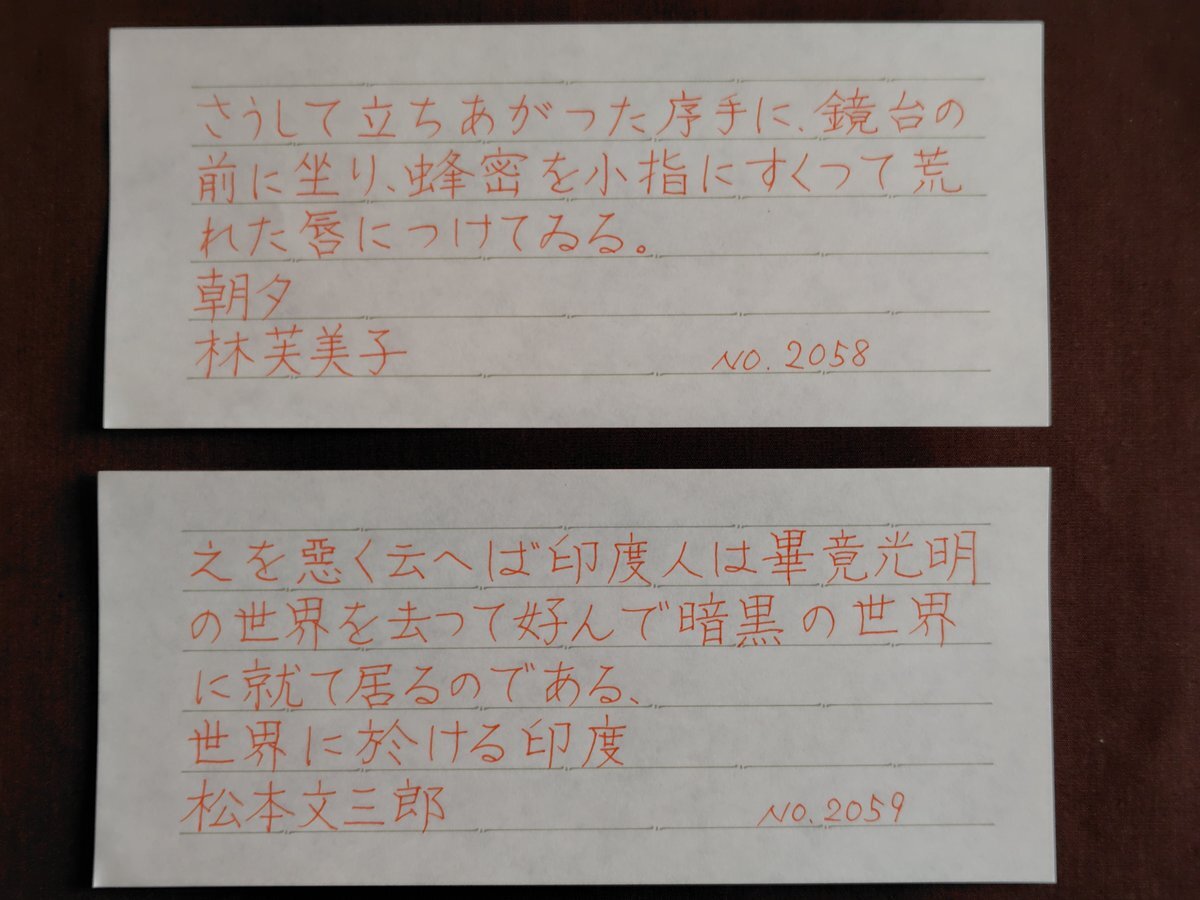 さうして立ちあがつた序手に、鏡台の
前に坐り、蜂密を小指にすくつて荒
れた唇につけてゐる。
朝夕
林芙美子
NO. 2058
之を惡く云へば印度人は畢竟光明
の世界を去つて好んで暗黒の世界
に就て居るのである、
世界に於ける印度
松本文三郎
NO. 2059